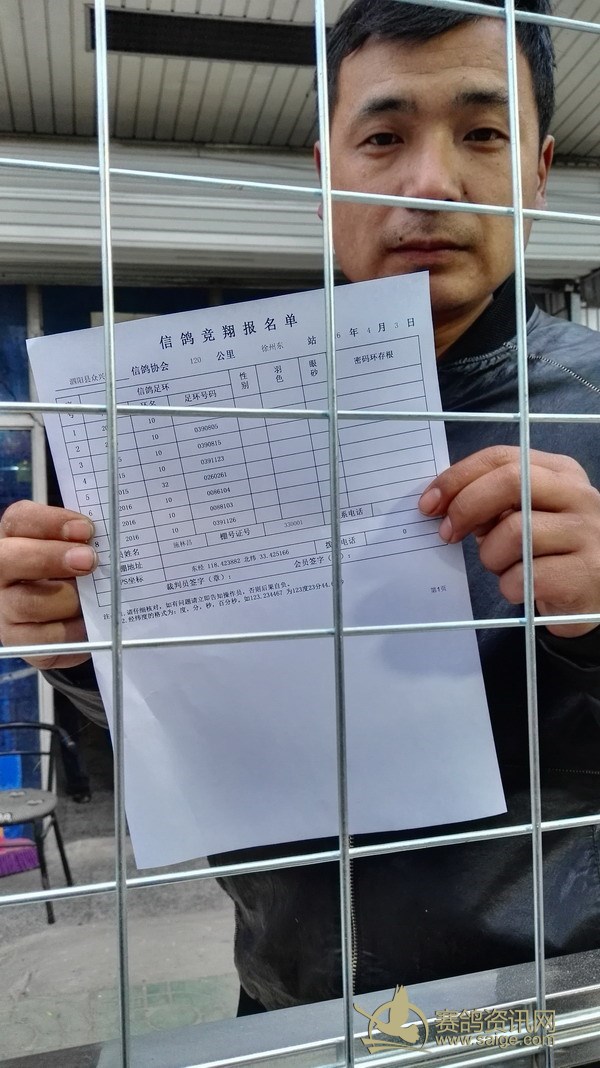 信鸽竞翔报名单
泗阳县众兴 信鸽协会 120 公里 徐州东 站 6 年 4 月 3 日
信鸽足环 性别 羽色 眼砂 密码环存根
号 环名 足环号码
1 10 0390805
2 10 0390815
3 15 10 0391123
4 15 32 0260261
5 2015 10 0086104
6 2016 10 0088103
2016 10 0391126
8 2016
员姓名 棚号证号 330001 系电话
棚地址 电话 0
PS坐标 东经 118.423882 北纬 33.425166
裁判员签字（章）： 会员签字（章）：
1.请仔细核对，如有问题请立即告知操作员，否则后果自负。
2.经纬度的格式为：度，分，秒，百分秒，如123.234467 为123度23分44. 第1页
赛鸽资讯网
www.saige.com